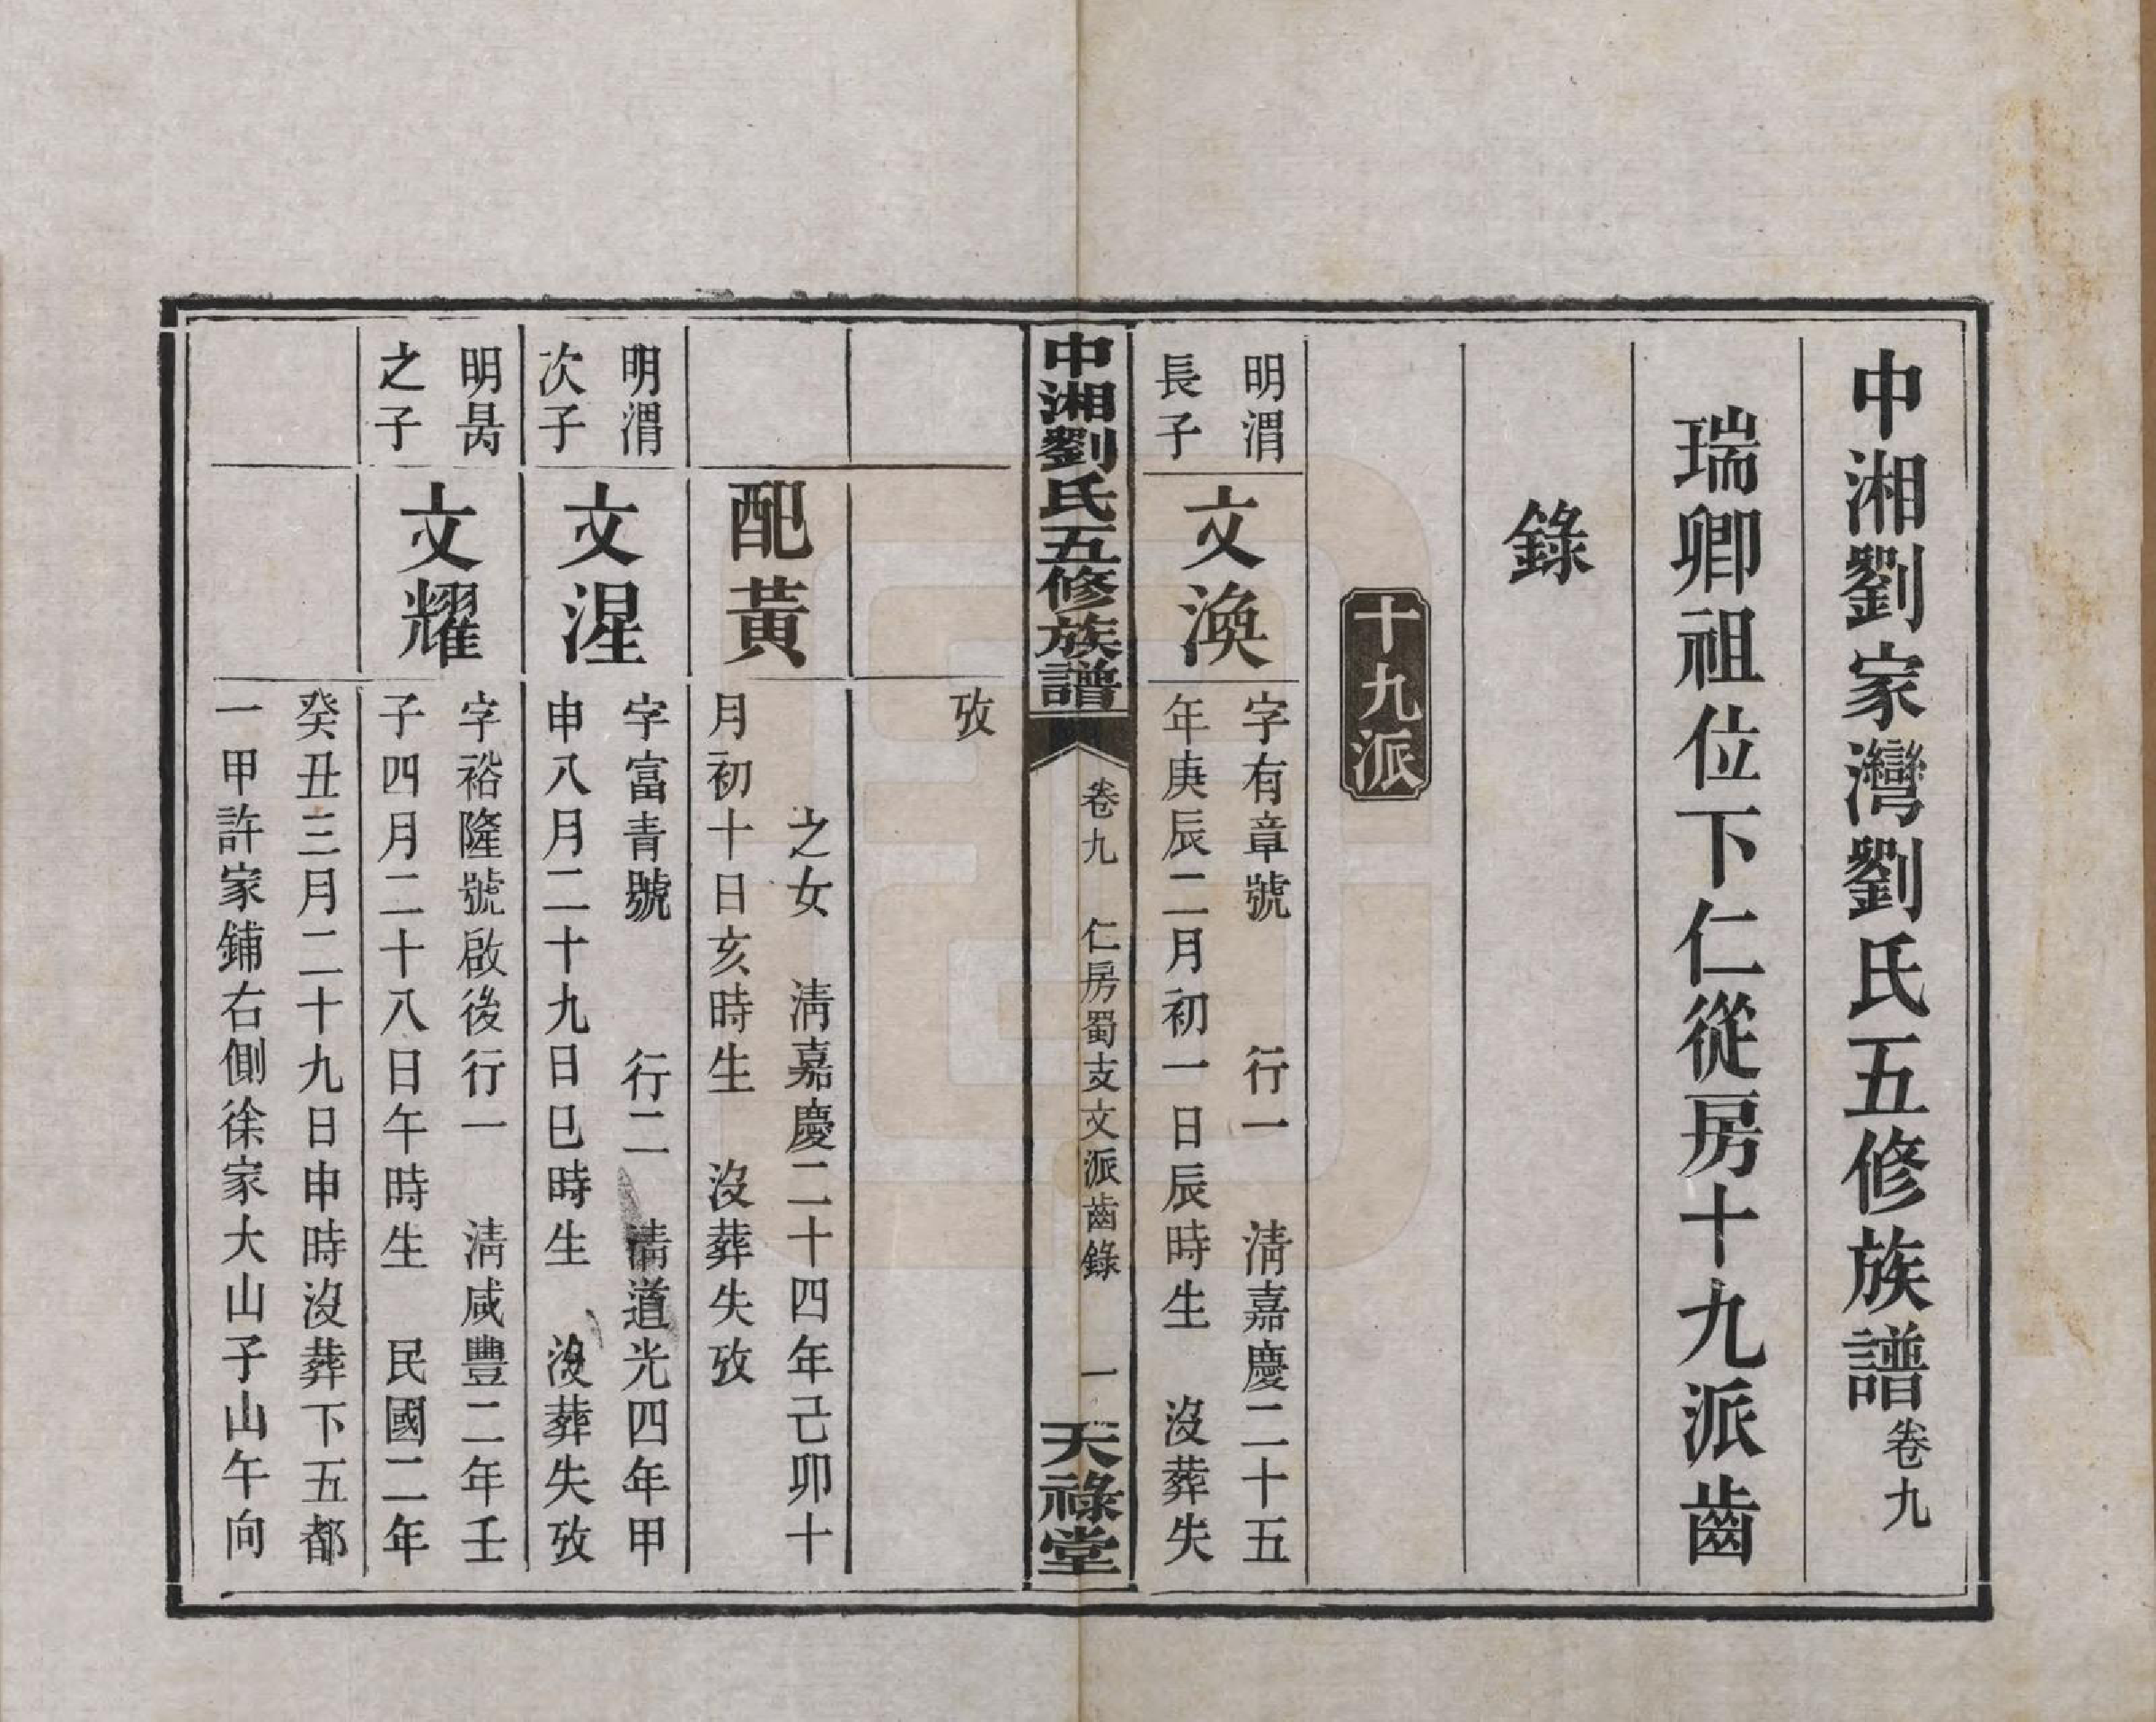 中湘劉家灣劉氏五修族譜卷九
瑞卿祖位下仁從房十九派齒
錄
十九派
明渭
長子
文渙
字有章號　行一　清嘉慶二十五
年庚辰二月初一日辰時生　沒葬失
中湘劉氏五修族譜
卷九　仁房蜀支文派齒錄　一
天祿堂
攷
配黃
之女　清嘉慶二十四年己卯十
月初十日亥時生　沒葬失攷
明渭
次子
文湦
字富青號　行二　清道光四年甲
申八月二十九日巳時生　沒葬失攷
明昺
之子
文耀
字裕隆號啟後行一　清咸豐二年壬
子四月二十八日午時生　民國二年
癸丑三月二十九日申時沒葬下五都
一甲許家鋪右側徐家大山子山午向